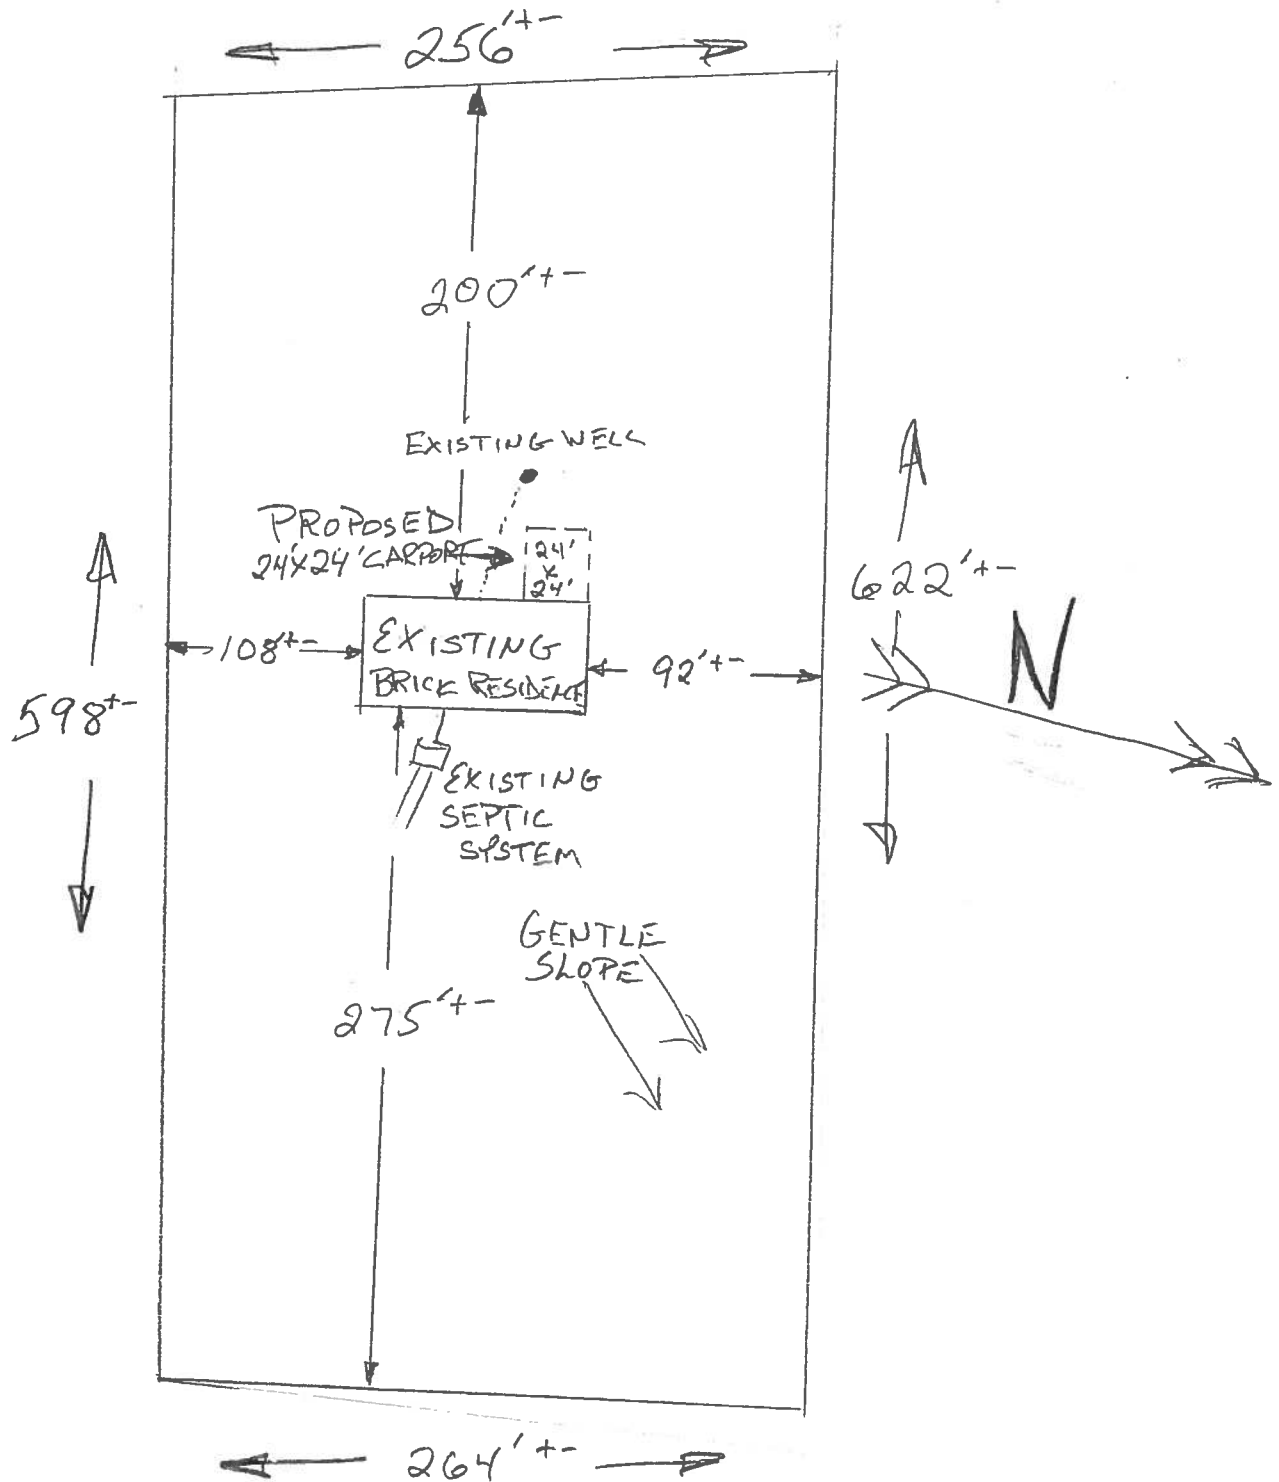 256'+-
200'+-
EXISTING WELL
PROPOSED
24'X24' CARPORT
24'
X
24'
622'+-
N
108'+-
EXISTING
BRICK RESIDENCE
92'+-
598'+-
EXISTING
SEPTIC
SYSTEM
GENTLE
SLOPE
275'+-
264'+-